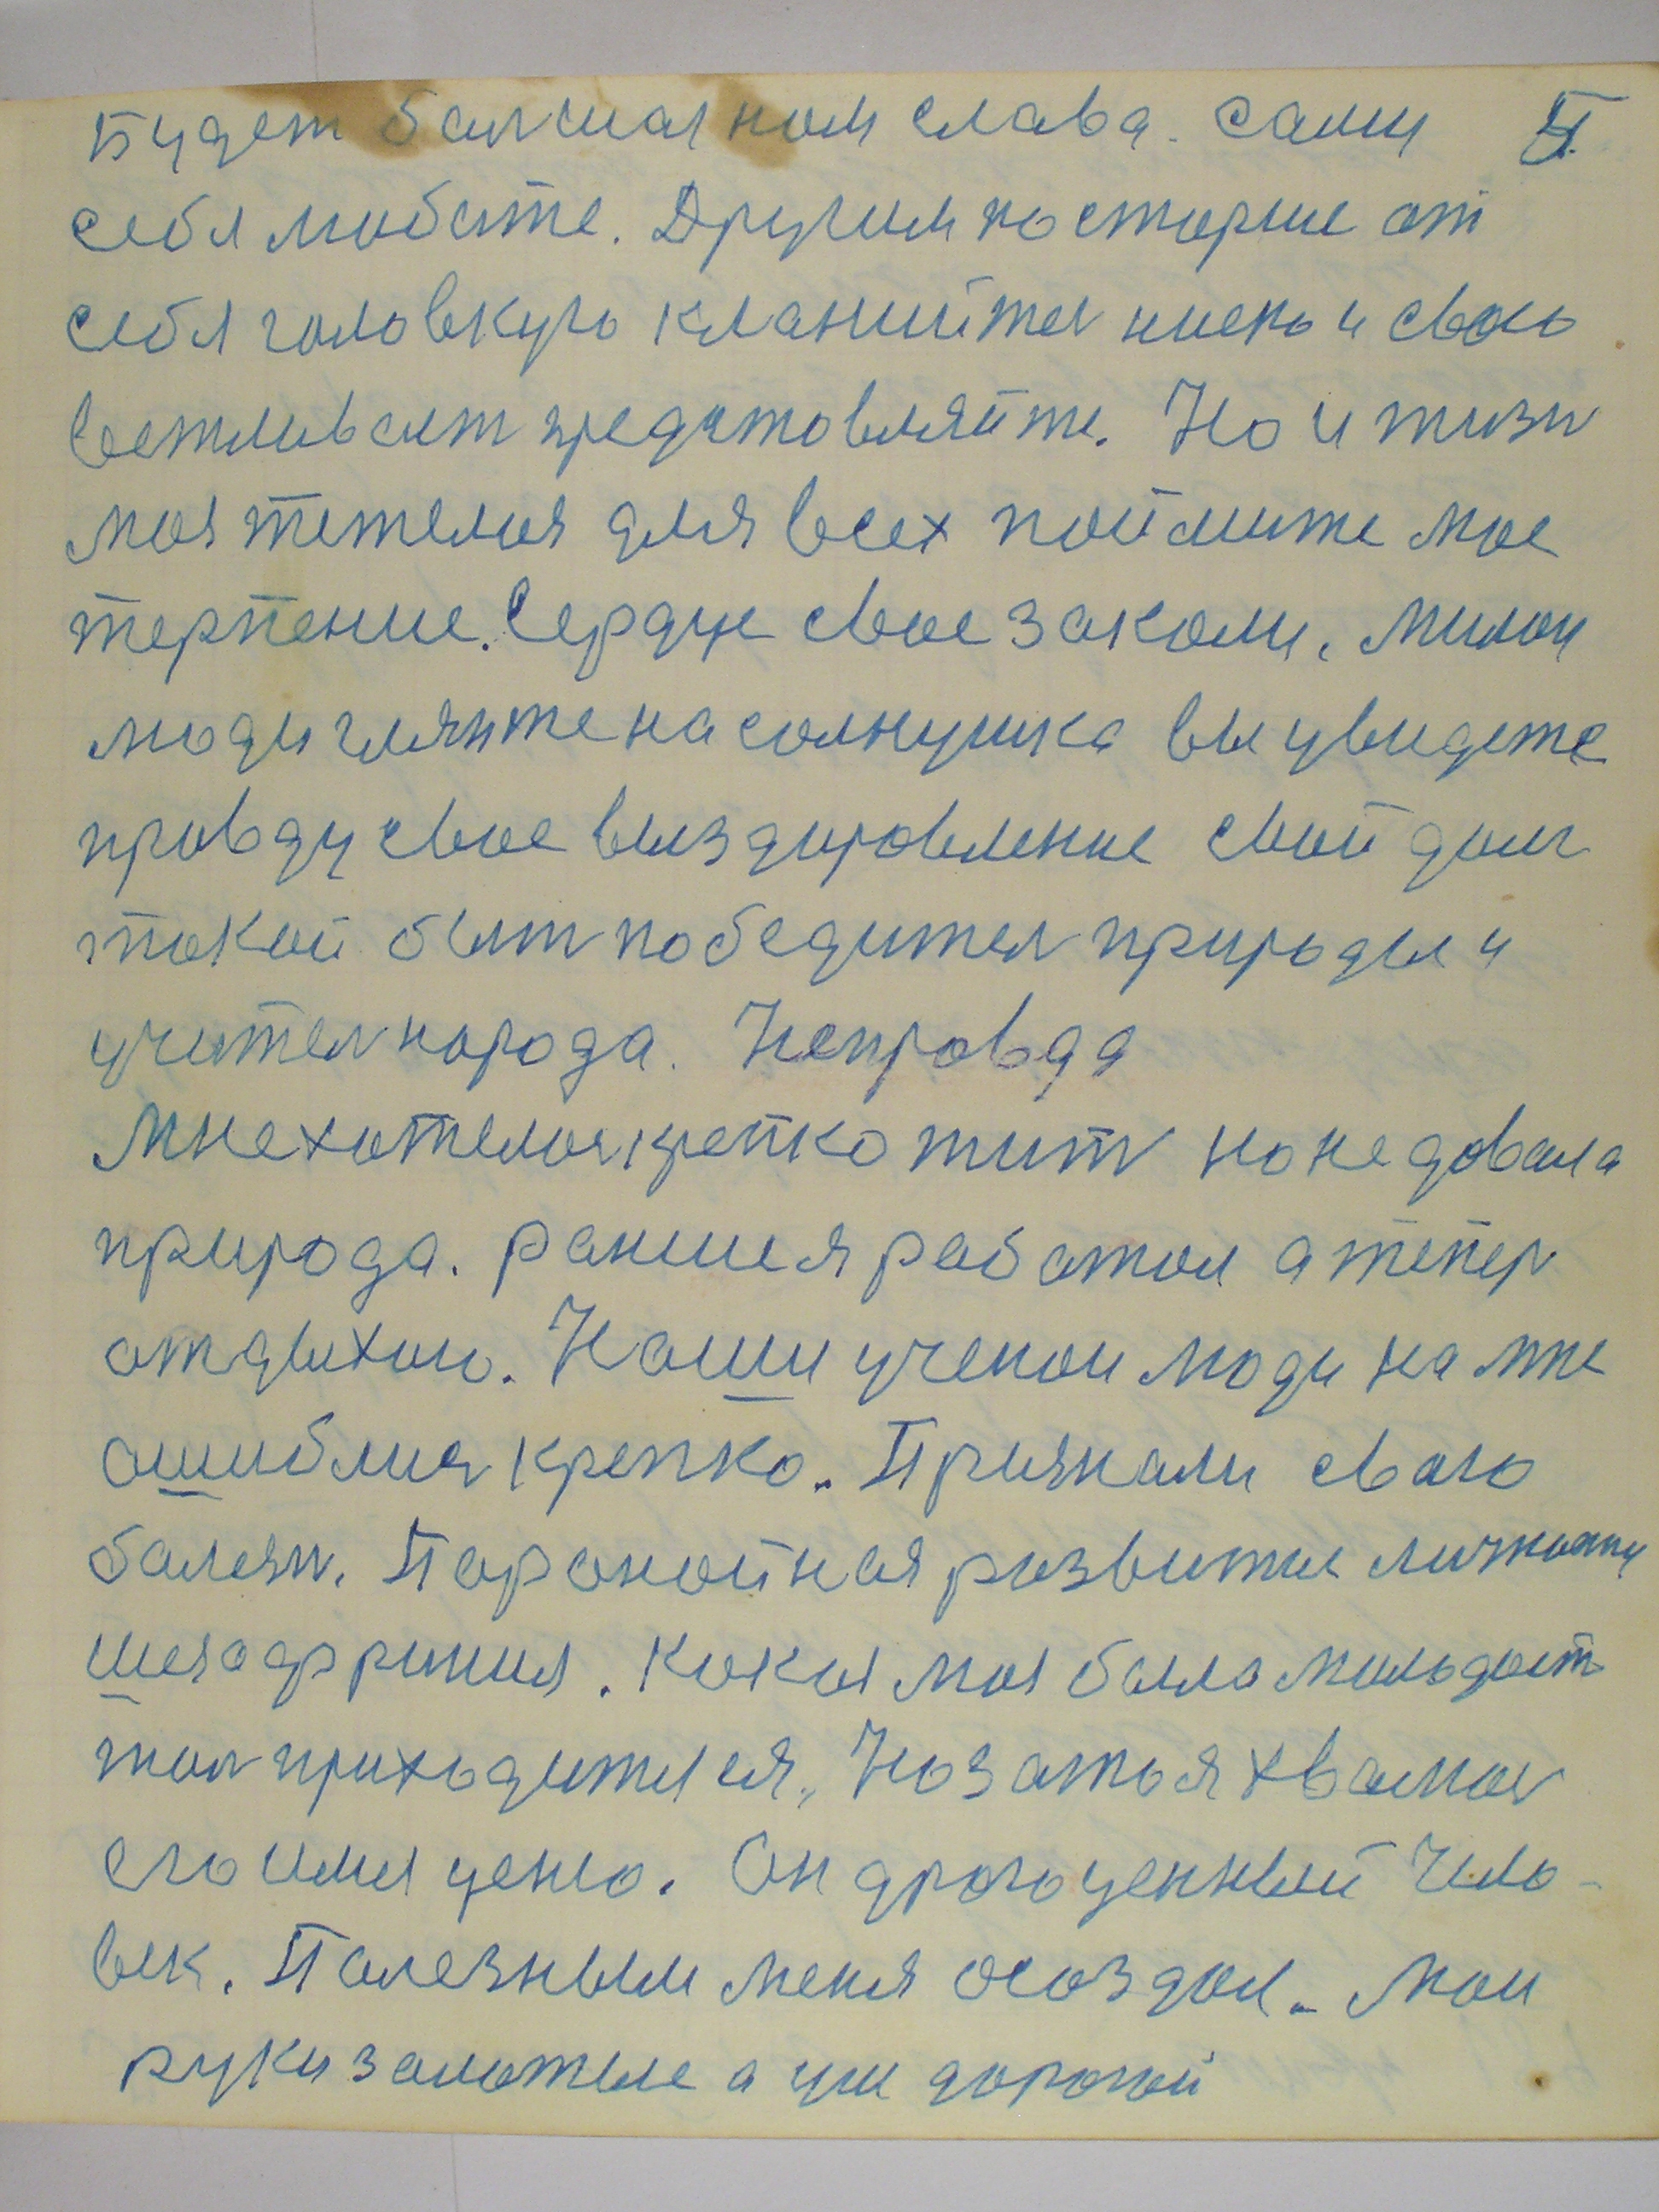 Будет балшая нам слава. сами 5.
себя любите. Другим постарше от
себя головкую кланийтес ниско и свою
вежливаст предстовляйте. Но и жизн
моя тежелоя для всех поймите мое
терпение. Сердце свое закали. милои
люди глянте на солнушка вы увидете
правду свое выздировление свой долг
токой быт победител природы и
учител народа. Неправда
мне хотелос крепко жит но не довала
природа. ранше я работал а тепер
отдыхаю. Наши ученои люди на мне
ошиблис крепко. Признали сваю
балезн. Паранойная розвитие личности
шезафриния. Какая моя была молодост
тал приходится. Но зато я хвалюс
его имя ценю. Он дрогоценный чило-
век. Палезным меня осоздал. мои
руки залотые а ум дорогой